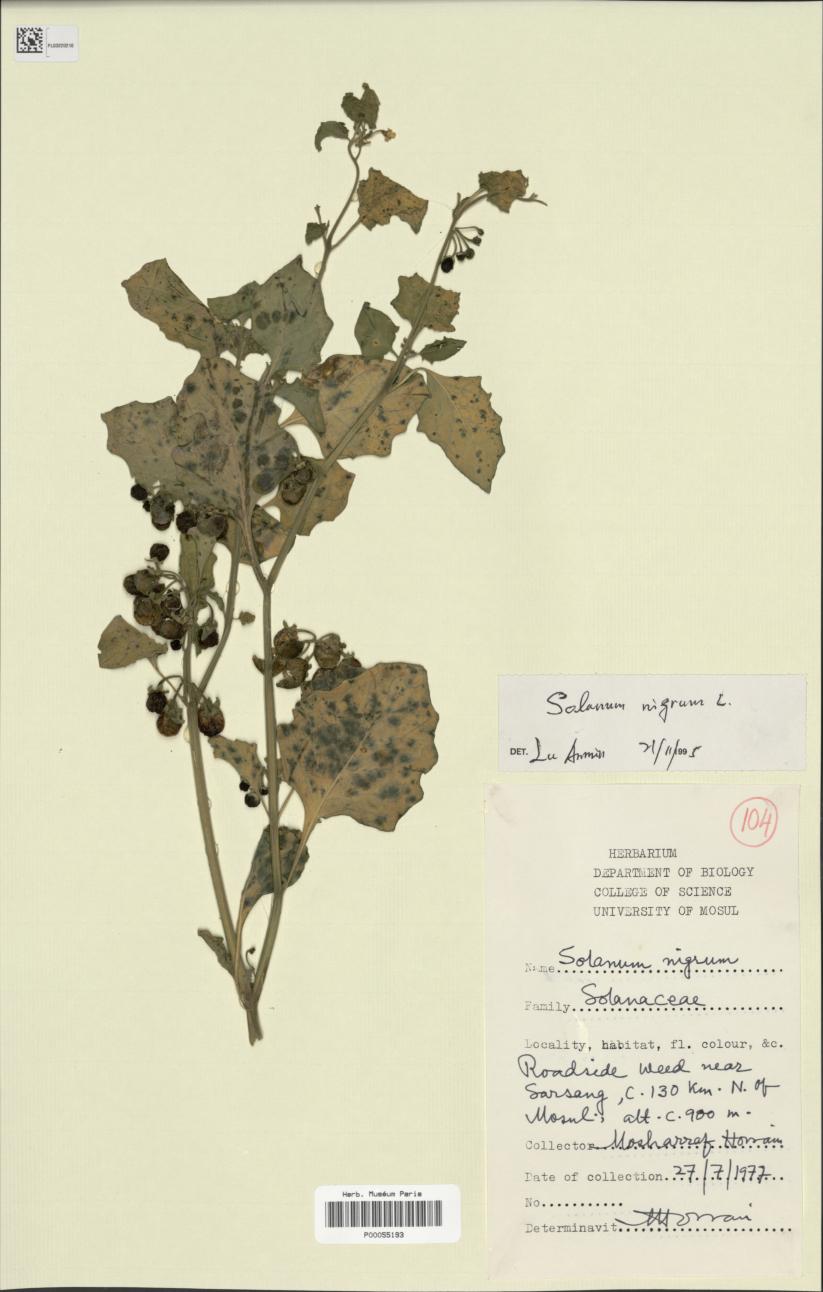 Solanum nigrum L.
DET. Lu Anmin 21/11/1995
104
HERBARIUM
DEPARTMENT OF BIOLOGY
COLLEGE OF SCIENCE
UNIVERSITY OF MOSUL
Name Solanum nigrum
Family Solanaceae
Locality, habitat, fl. colour, &c.
Roadside weed near
Sarsang, C. 130 Km. N. of
Mosul; alt. c. 900 m.
Collector Mosharraf Hossain
Date of collection 27/7/1977
No
Determinavit MHossain
Herb. Muséum Paris
P00055193